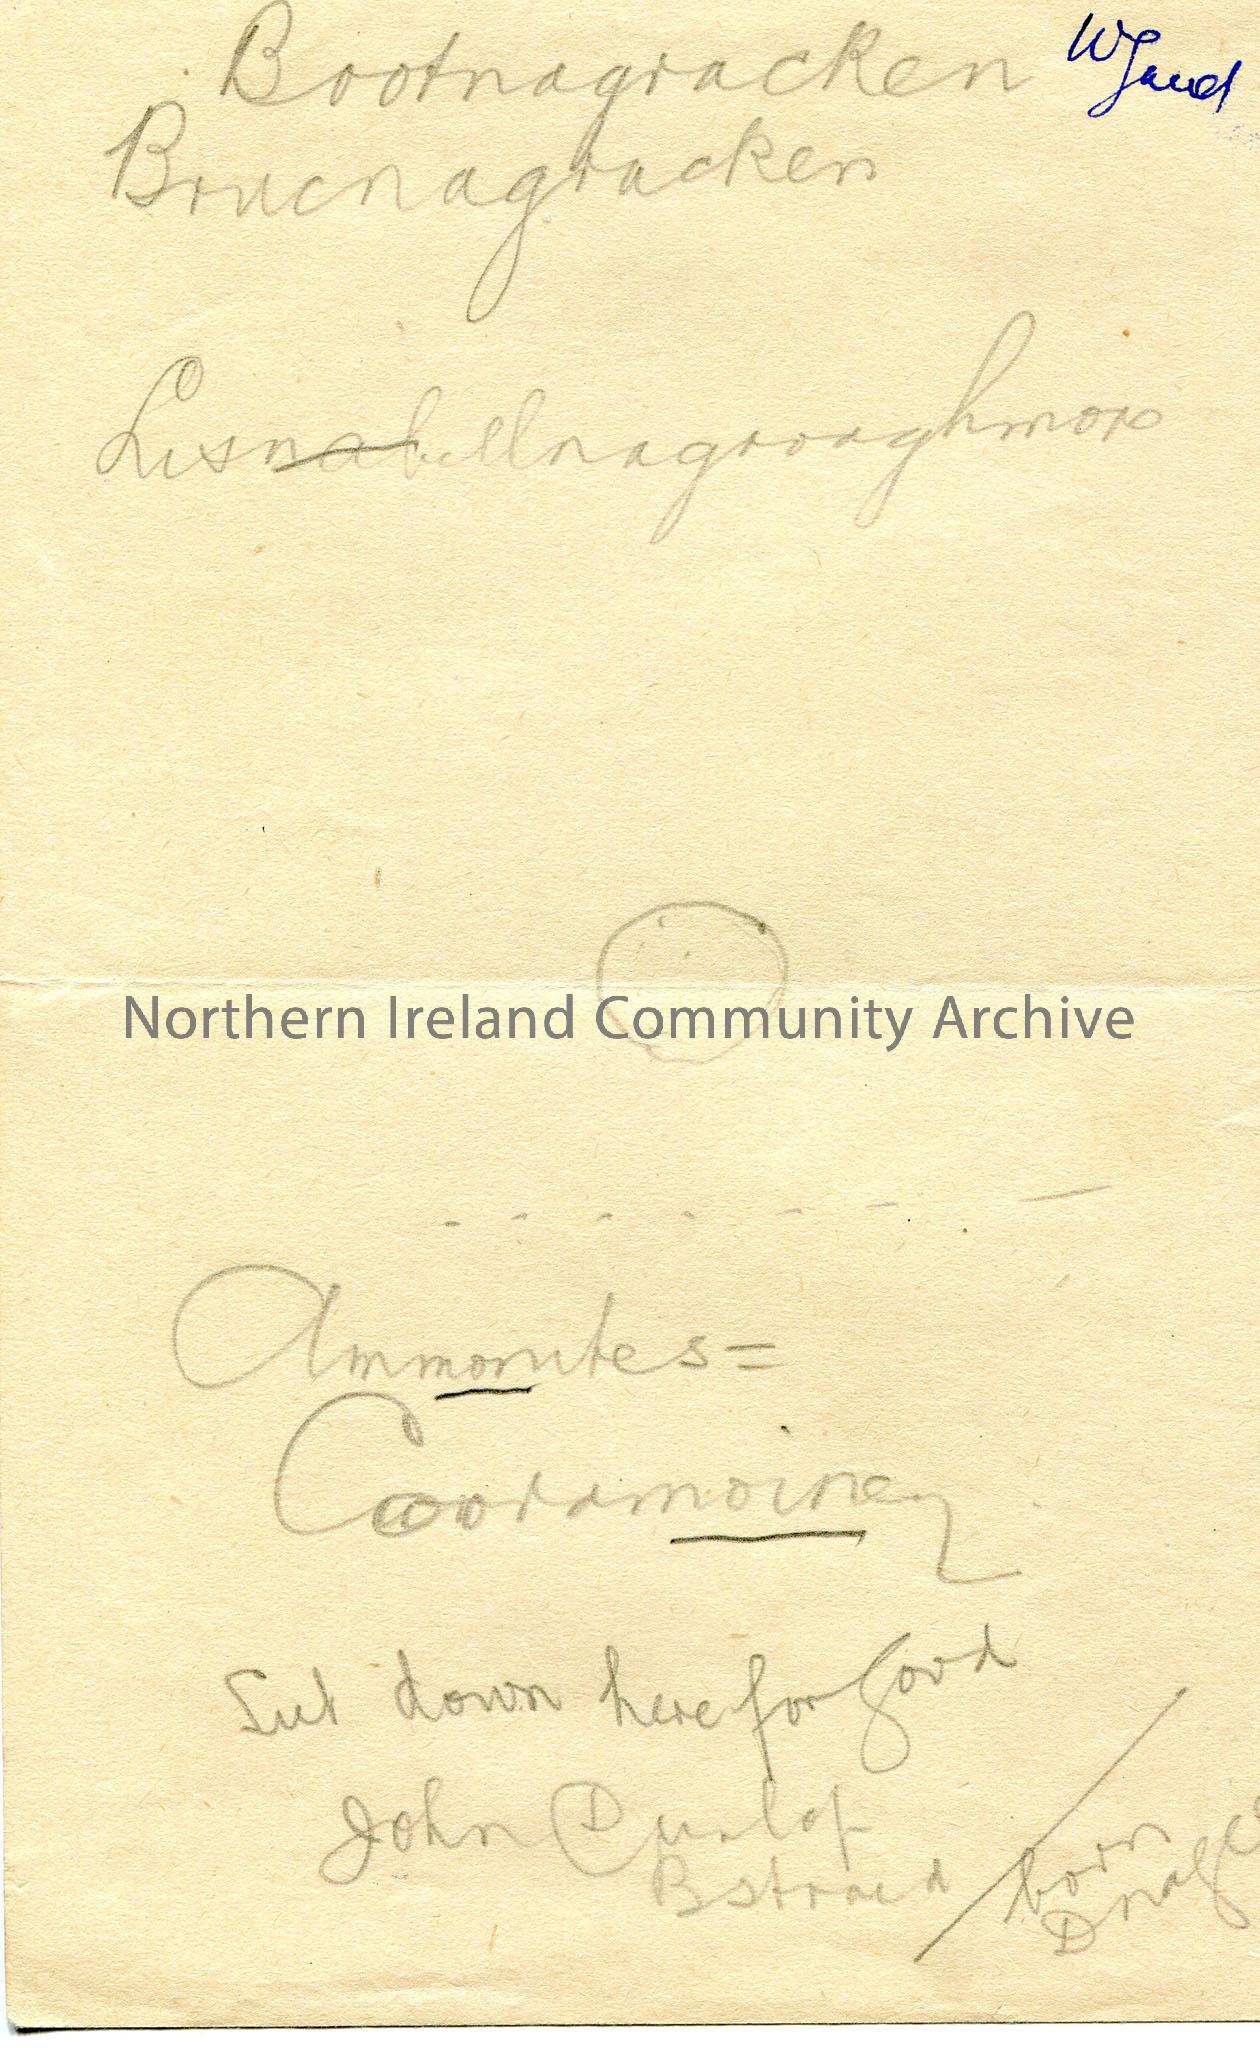 Bootnagracken
Brucnagracken
Lisnabellnagroaghmore
Northern Ireland Community Archive
Ammonites =
Cooramoiney
Sut down here for good
John Dunlop
Bstraed
born